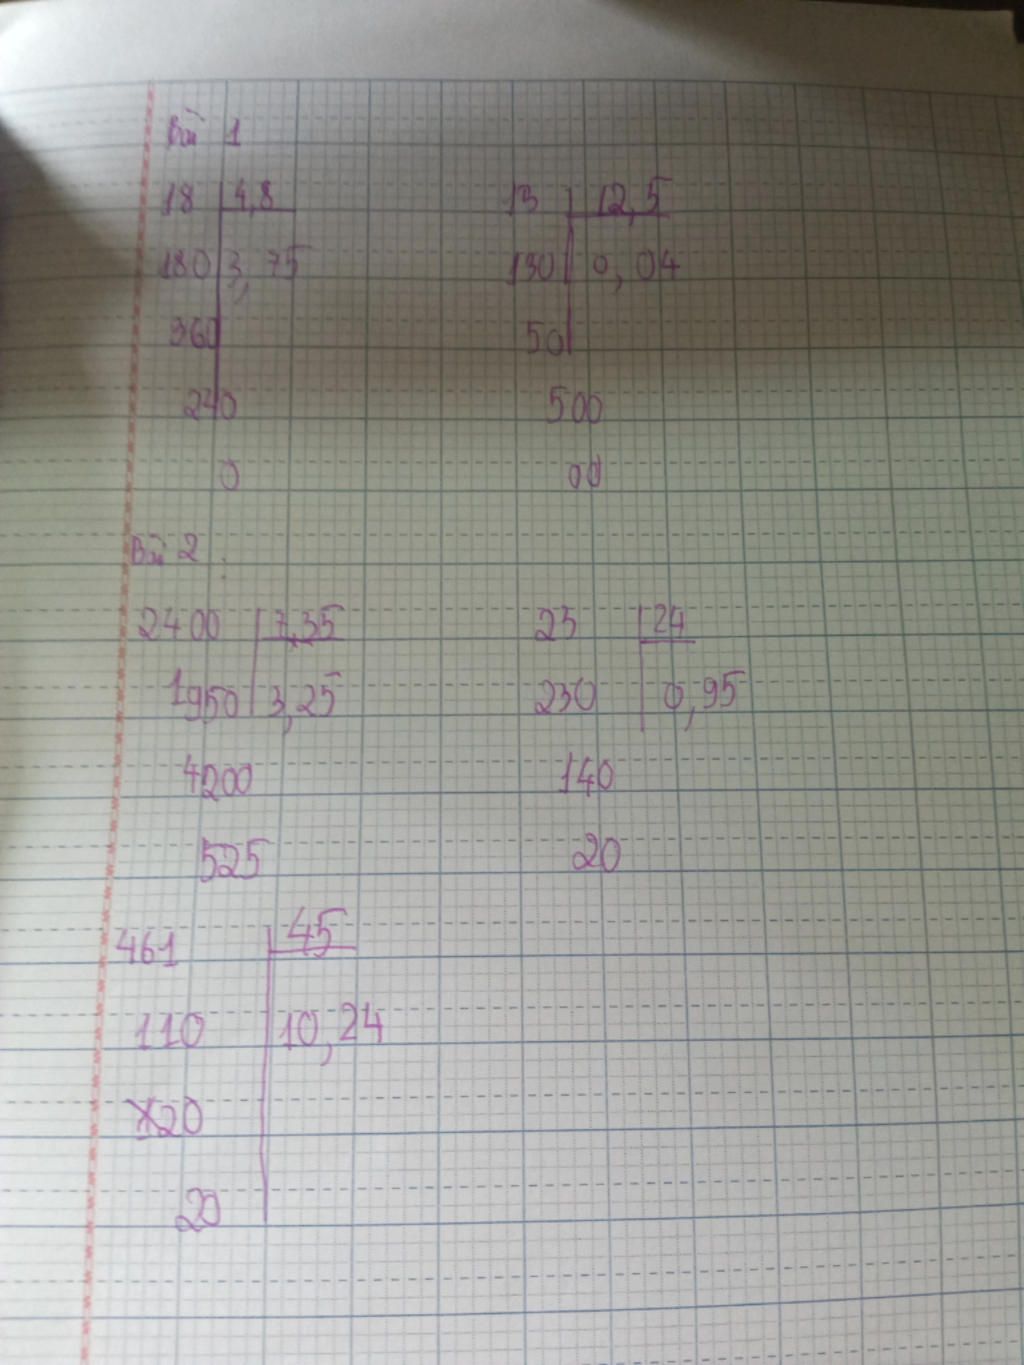 Bài 1
18 4,8
180 3,75
360
240
0
13 12,5
130 0,04
50
500
00
Bài 2:
2400 7,35
1950 3,25
4200
525
23 24
230 0,95
140
20
461 45
110 10,24
20
20